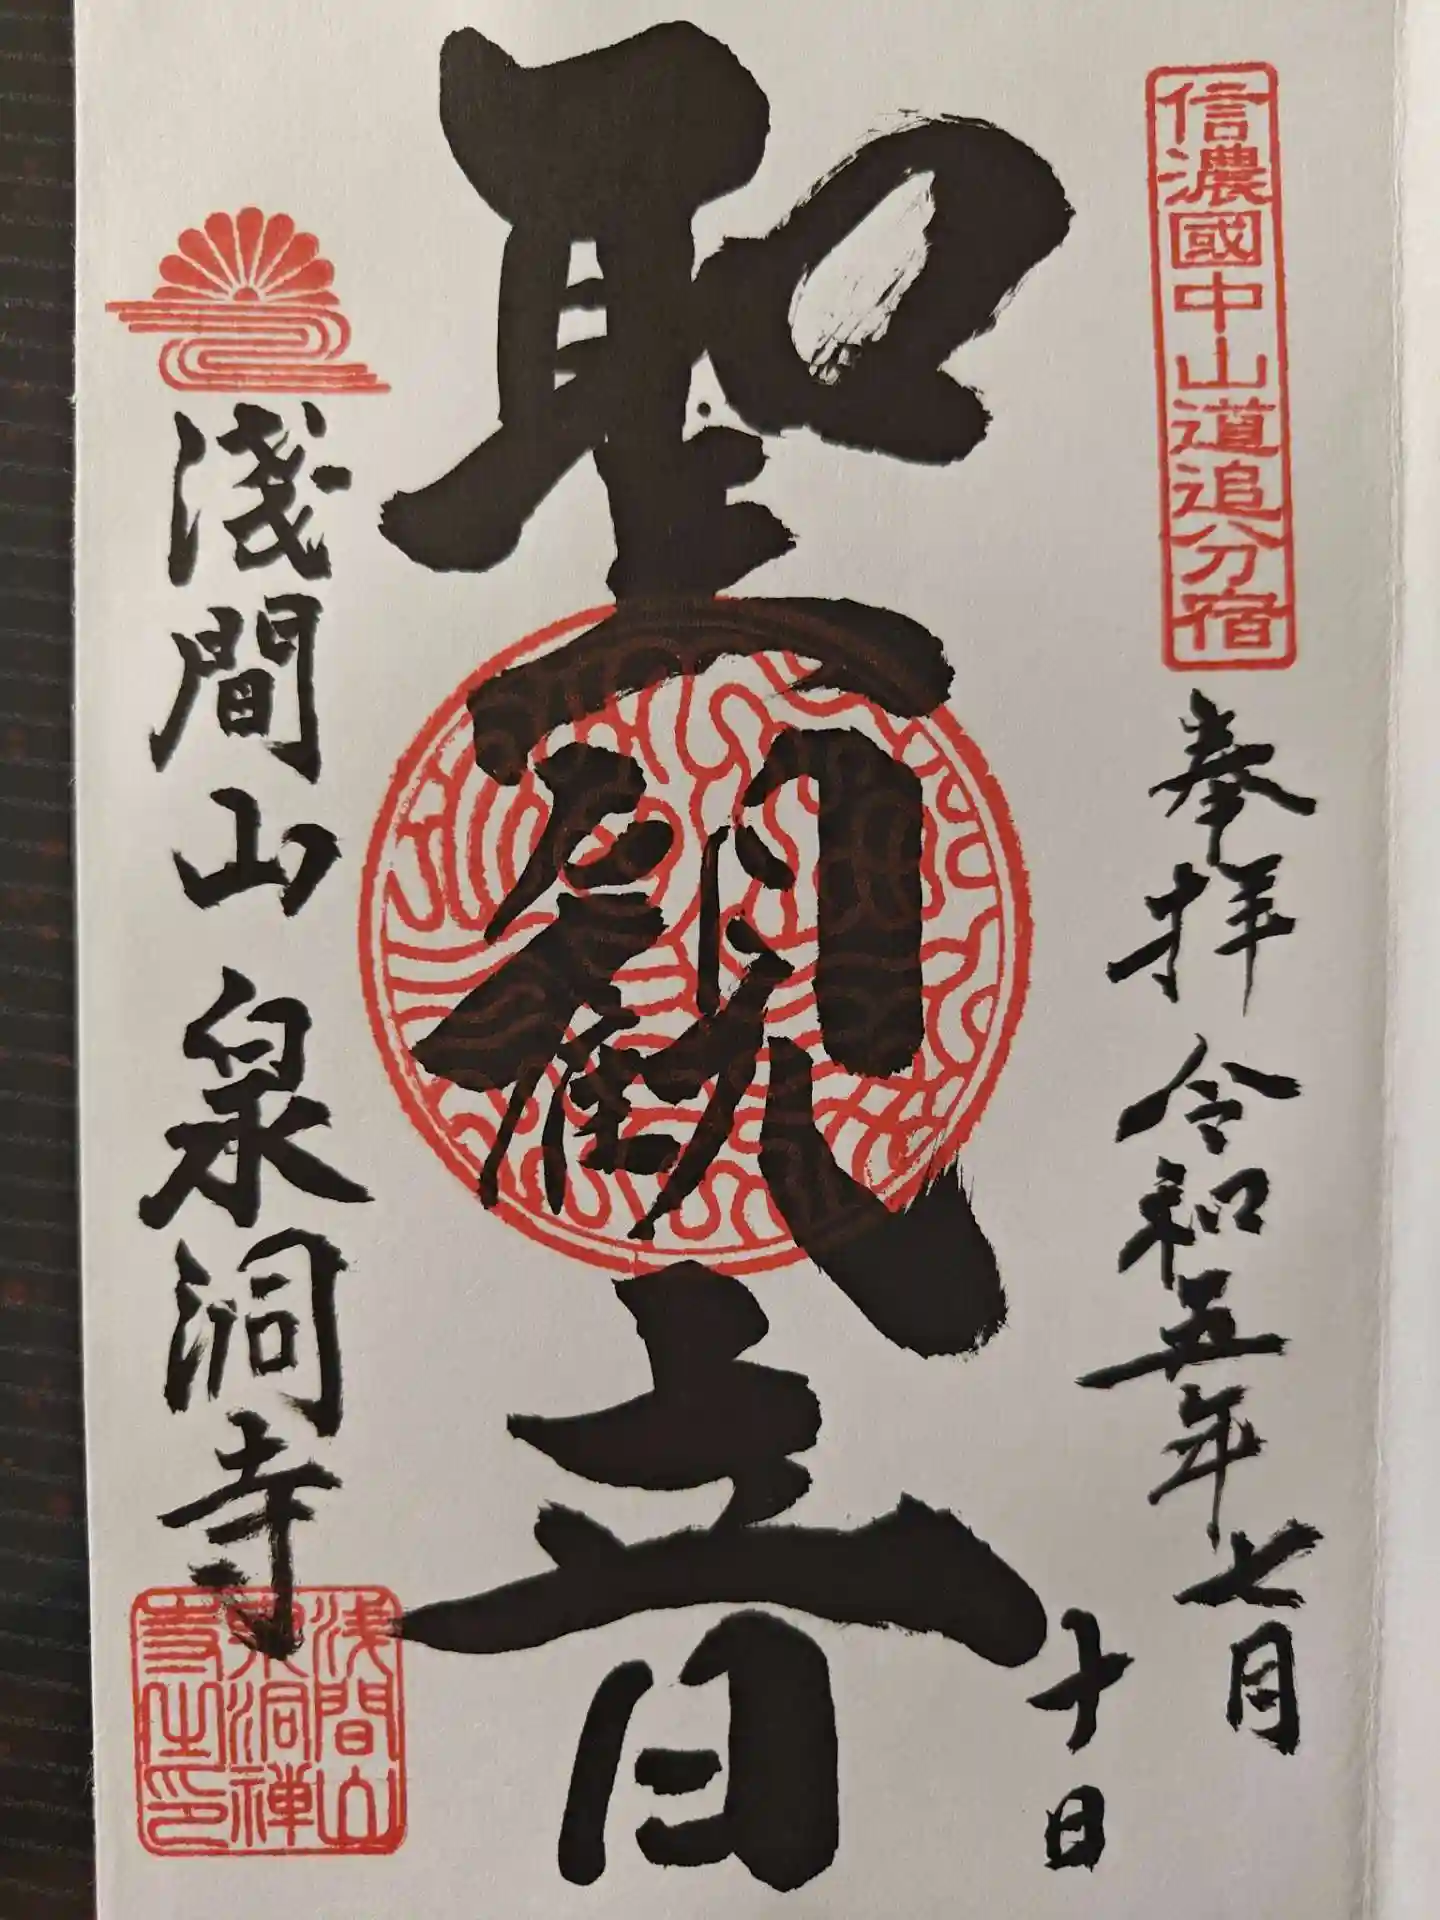 信濃國中山道追分宿
奉拝 令和五年七月
十日
聖観音
淺間山 泉洞寺
浅間山
泉洞禅
寺之印